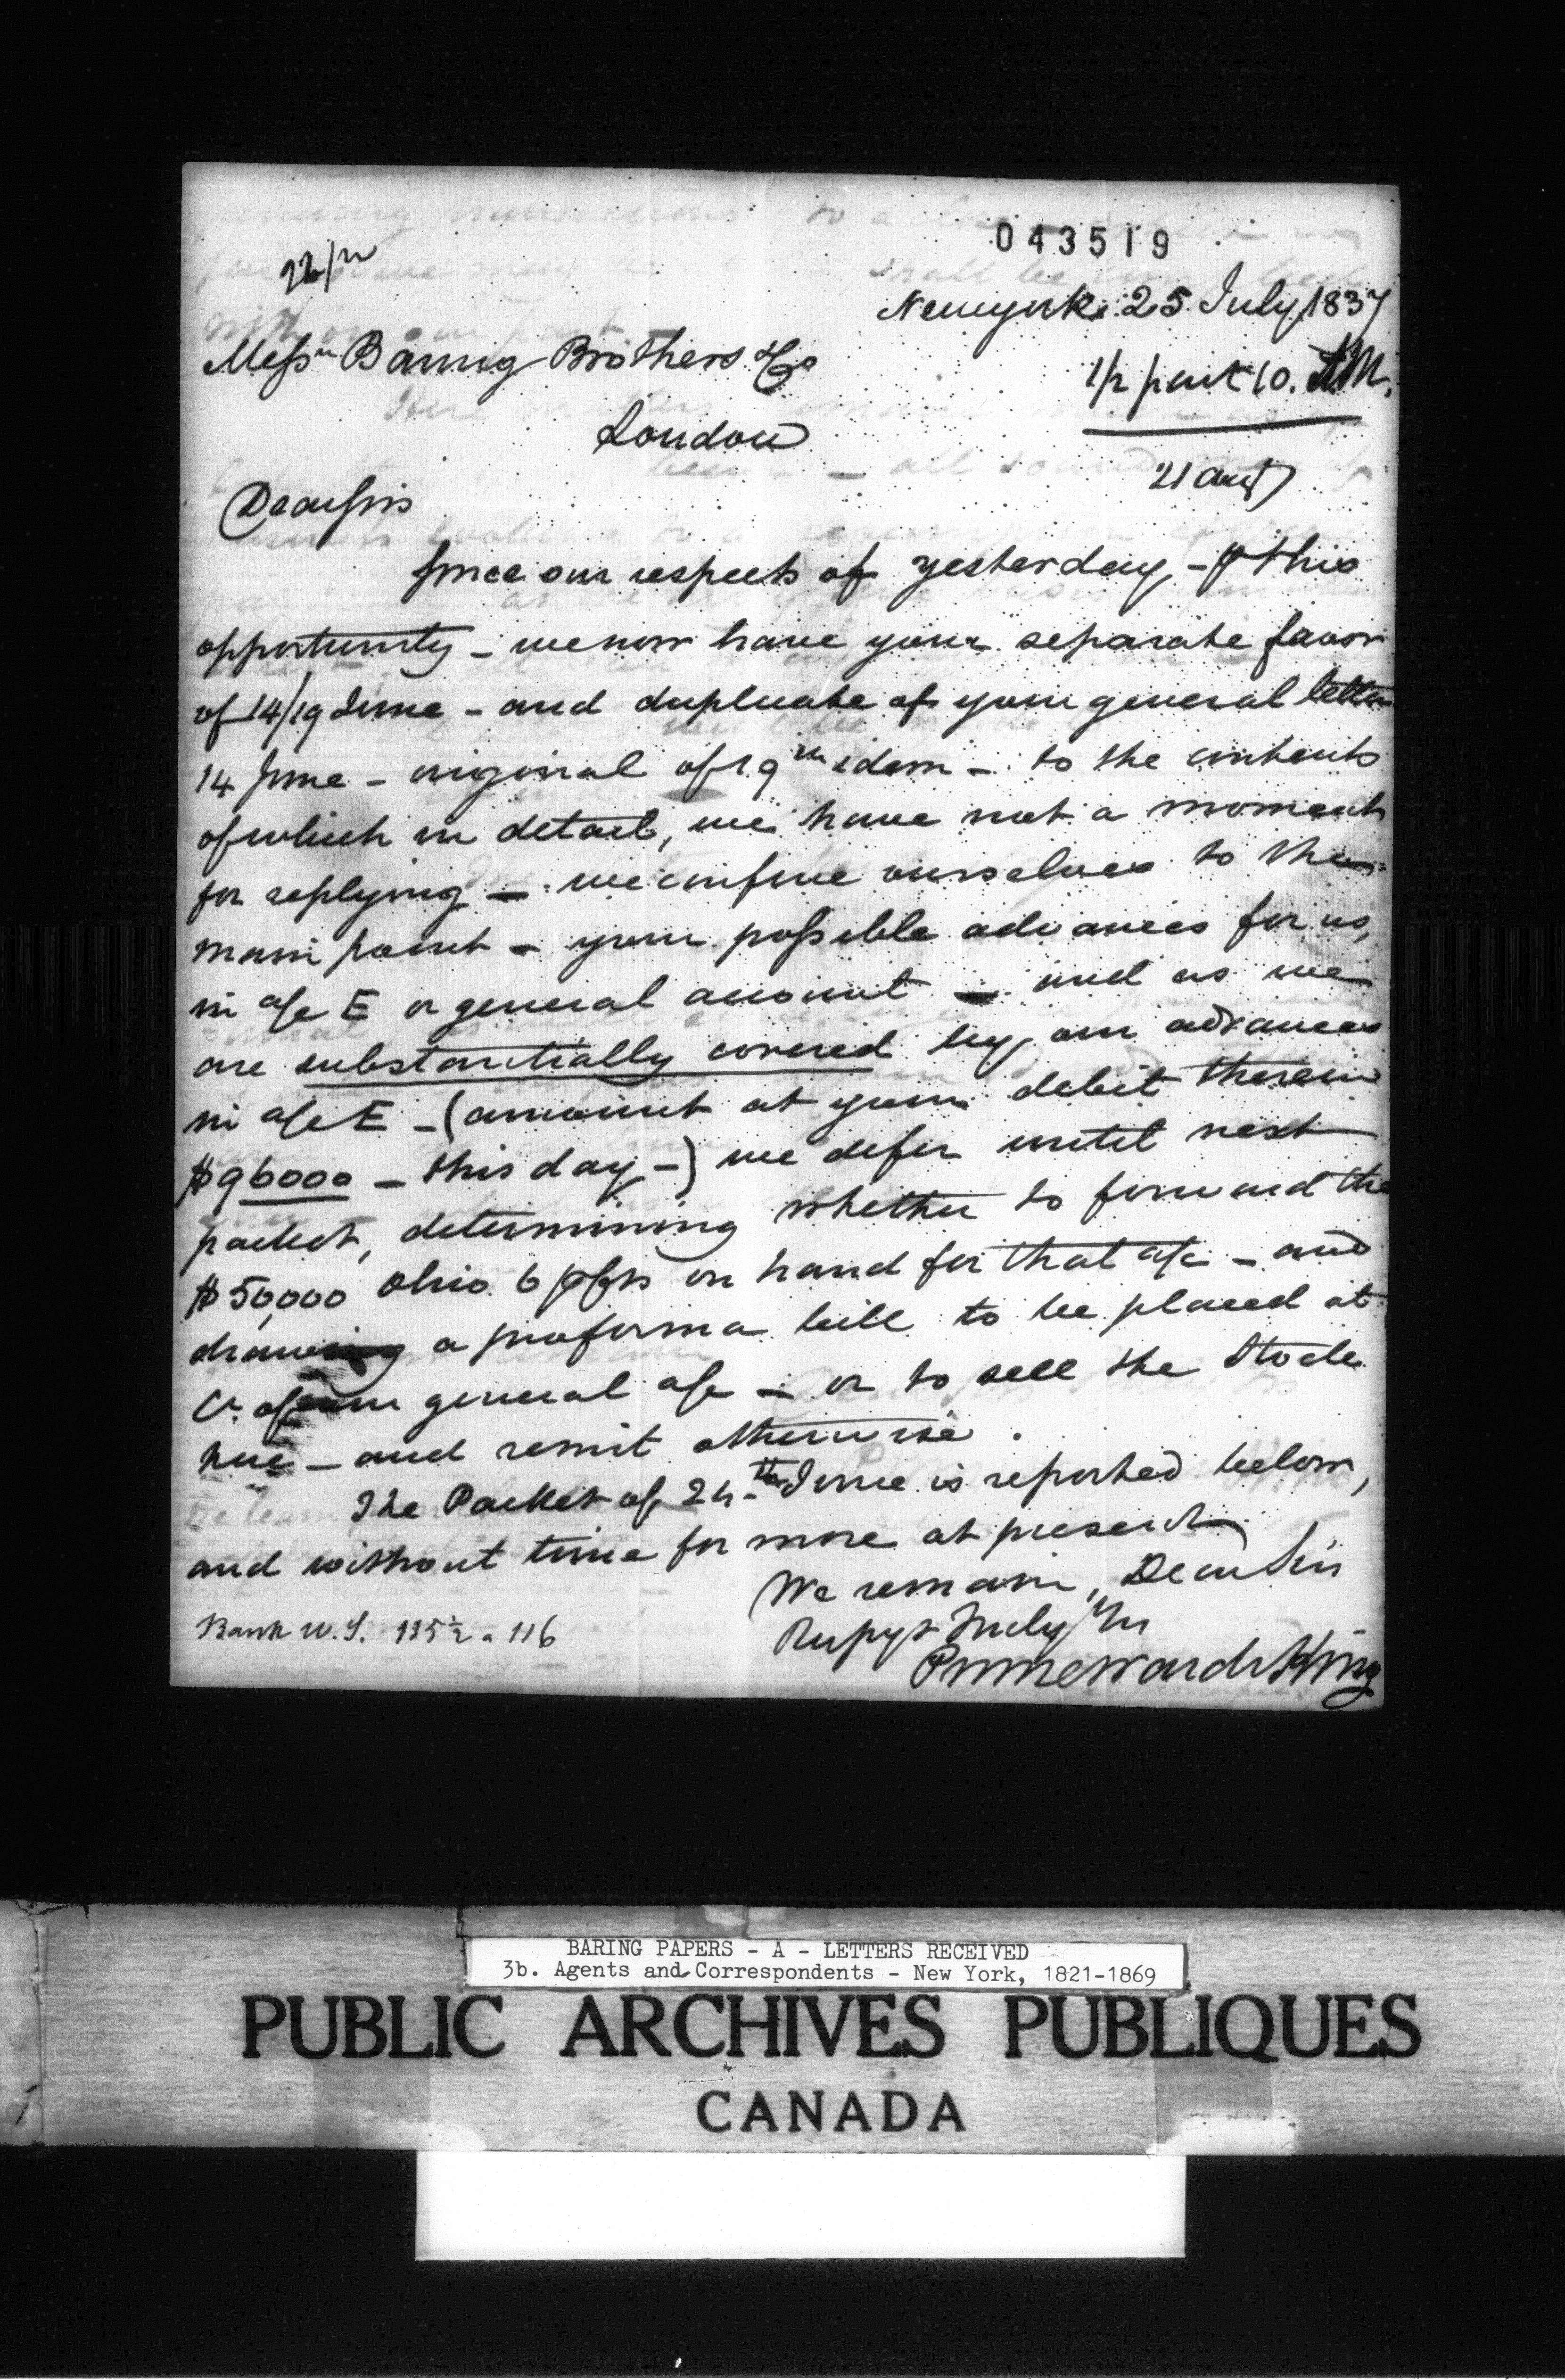 043519
Newyork 25 July 1837
Messrs Baring Brothers & Co
1/2 past 10. AM.
London
21 Augt
Dear Sirs
Since our respects of yesterday - p this
opportunity - we now have your separate favor
of 14/19 June - and duplicate of your general letter
14 June - original of 19th idem - to the contents
of which in detail, we have not a moment
for replying - we confine ourselves to the
main point - your possible advances for us,
in a/c E or general account - and as we
are substantially covered by our advances
in a/c E - (amount at your debit therein
$96000 - this day -) we defer until next
packet, determining whether to forward the
$50,000 Ohio 6 p cts on hand for that a/c - and
drawing a proforma bill to be placed at
Cr. of our general a/c - or to sell the Stock
here - and remit otherwise.
The Packet of 24th June is reported below,
and without time for more at present
We remain, Dear Sirs
Respy & truly Yrs
Prime Ward & King
Bank U.S. 115 1/2 a 116
BARING PAPERS - A - LETTERS RECEIVED
3b. Agents and Correspondents - New York, 1821-1869
PUBLIC ARCHIVES PUBLIQUES
CANADA